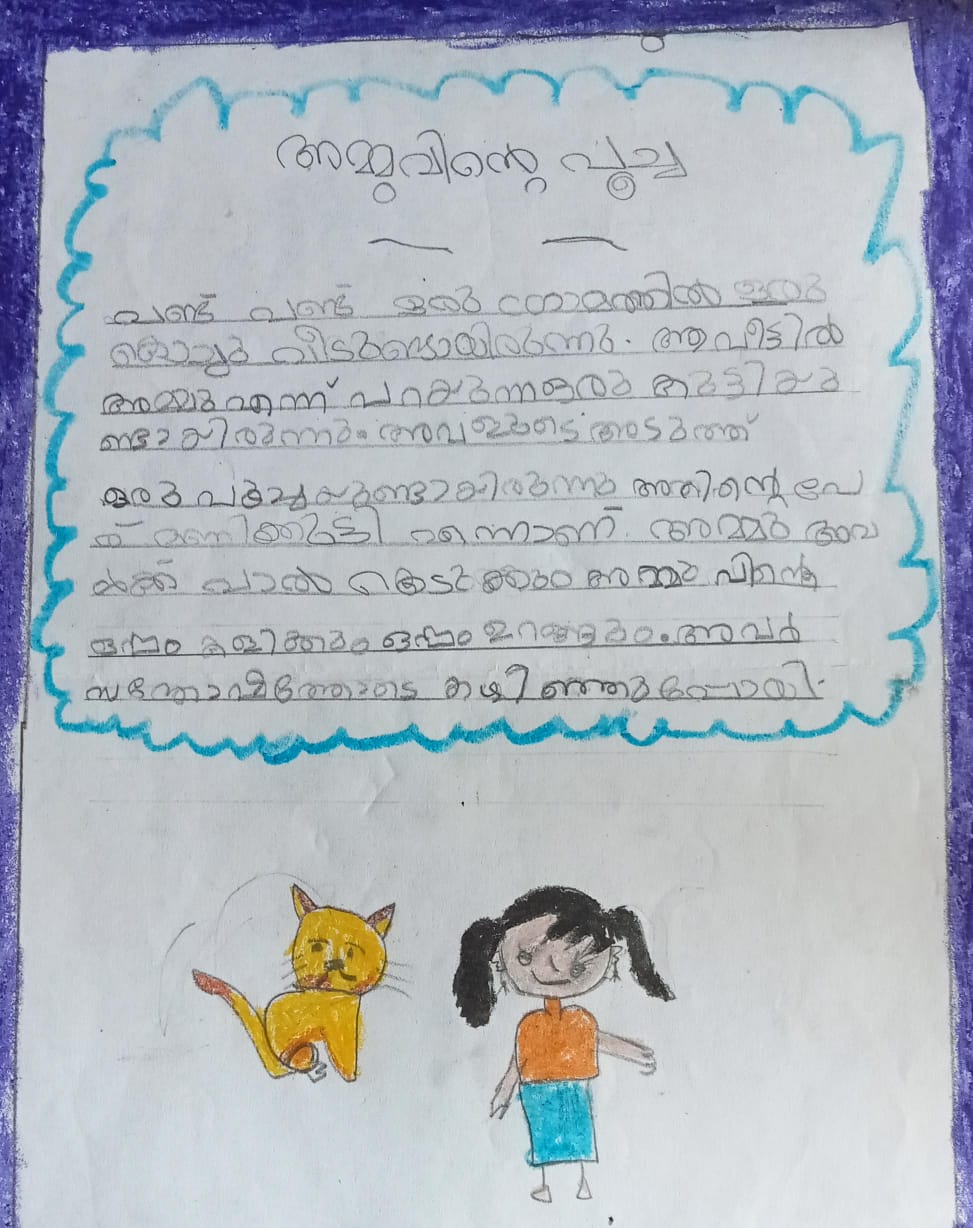 അമ്മുവിന്റെ പൂച്ച
പണ്ട് പണ്ട് ഒരു ഗ്രാമത്തിൽ ഒരു
കൊച്ചു വീടുണ്ടായിരുന്നു. ആ വീട്ടിൽ
അമ്മു എന്ന് പറയുന്ന ഒരു കുട്ടിയു
ണ്ടായിരുന്നു. അവളുടെ അടുത്ത്
ഒരു പൂച്ചയുണ്ടായിരുന്നു അതിന്റെ പേ
ര് മണിക്കുട്ടി എന്നാണ്. അമ്മു അവ
ൾക്ക് പാൽ കൊടുക്കും അമ്മു വിന്റെ
ഒപ്പം കളിക്കും ഒപ്പം ഉറങ്ങും. അവർ
സന്തോഷത്തോടെ കഴിഞ്ഞുപോയി.